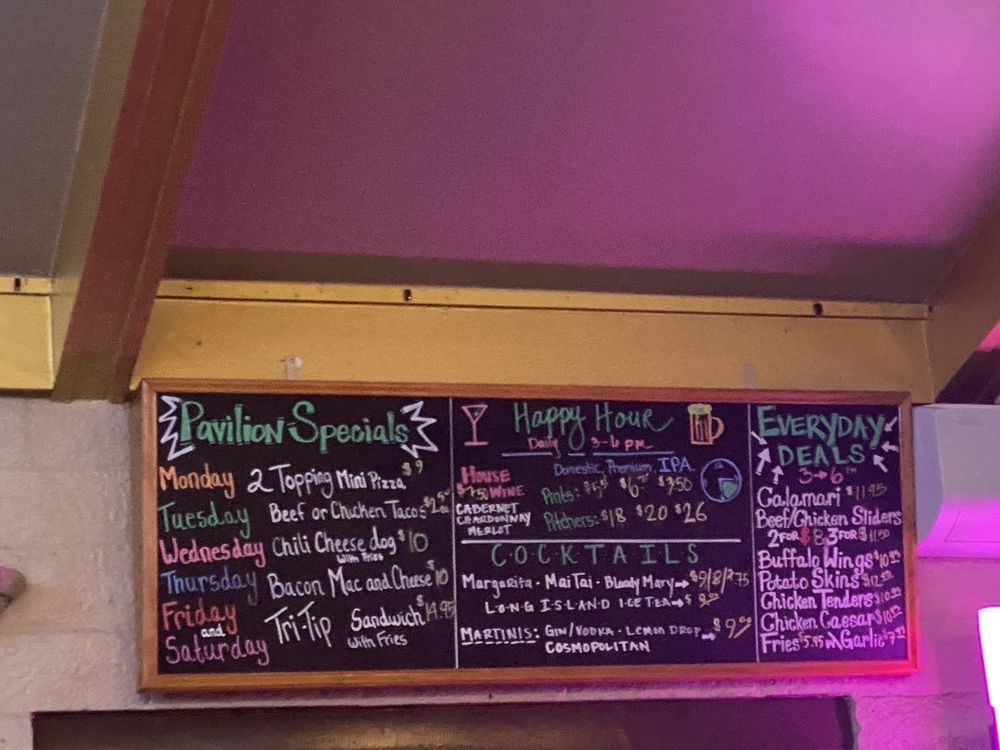 Pavilion Specials
Monday 2 Topping Mini Pizza $9
Tuesday Beef or Chicken Tacos
Wednesday Chili Cheese dog $10
with Fries
Thursday Bacon Mac and Cheese $10
Friday
and
Saturday
Tri-Tip Sandwich $14.95
with Fries
Happy Hour
Daily 3-6 pm
House
$7.50 WINE
CABERNET
CHARDONNAY
MERLOT
Domestic, Premium, IPA
Pints: $7.50
Pitchers: $18 $20 $26
COCKTAILS
Margarita - Mai Tai - Bloody Mary
LONG ISLAND ICE TEA
MARTINIS: Gin/Vodka - Lemon Drop
COSMOPOLITAN
EVERYDAY
DEALS
3→6
Calamari $11.95
Beef/Chicken Sliders
2 FOR $8 3 FOR
Buffalo Wings
Potato Skins
Chicken Tenders
Chicken Caesar
Fries $5.95 Garlic